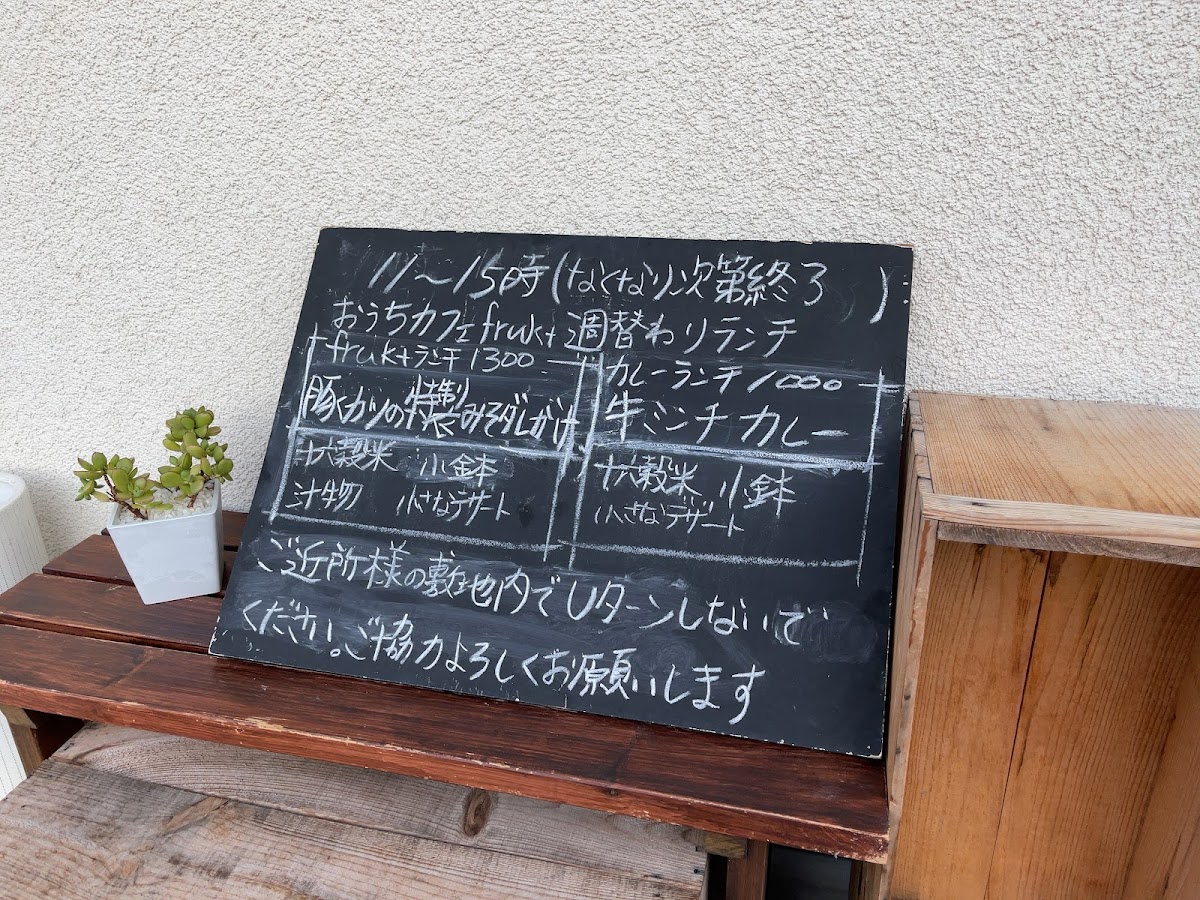 11~15時(なくなり次第終了)
おうちカフェfrukt 週替わりランチ
fruktランチ 1300
豚カツの特製みそダレがけ
十六穀米 小鉢
汁物 小さなデザート
カレーランチ 1000
牛ミンチカレー
十六穀米 小鉢
小さなデザート
ご近所様の敷地内でUターンしないで
ください。ご協力よろしくお願いします